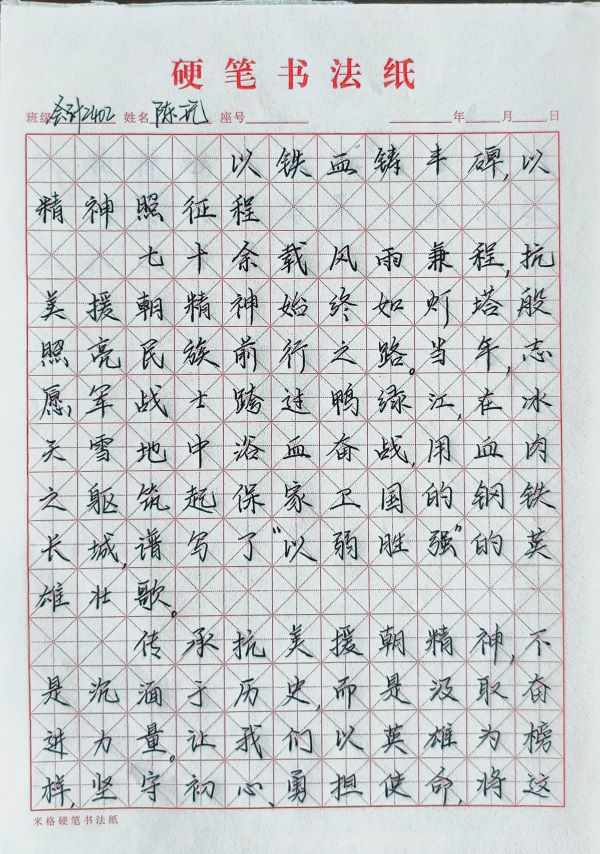 硬笔书法纸
班级会计2402 姓名陈抗 座号 年 月 日
以铁血铸丰碑,以
精神照征程
七十余载风雨兼程,抗
美援朝精神始终如灯塔般
照亮民族前行之路。当年,志
愿军战士跨过鸭绿江,在冰
天雪地中浴血奋战,用血肉
之躯筑起保家卫国的钢铁
长城,谱写了“以弱胜强”的英
雄壮歌。
传承抗美援朝精神,不
是沉湎于历史,而是汲取奋
进力量。让我们以英雄为榜
样,坚守初心、勇担使命,将这
米格硬笔书法纸